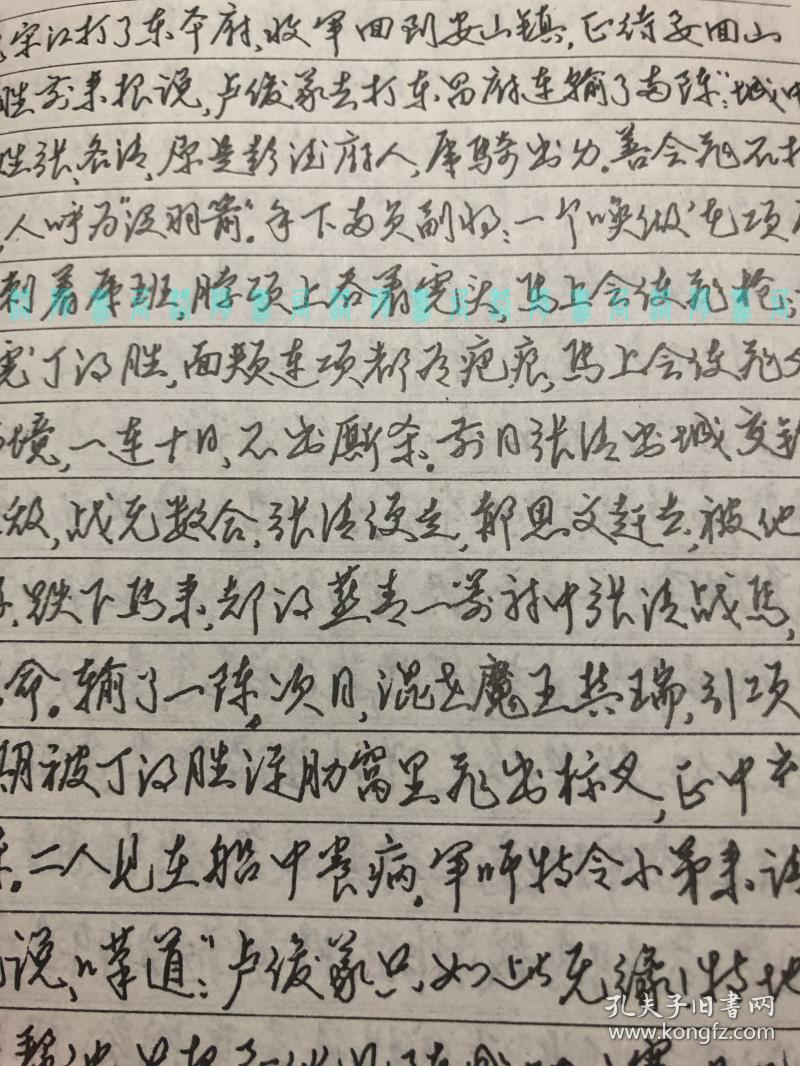 宋江打了东平府,收军回到安山镇,正待要回山
胜前来报说,卢俊义去打东昌府,连输了两阵:“城中
姓张,名清,原是彰德府人,虎骑出身。善会飞石打
,人呼为“没羽箭”。手下两员副将:一个唤做‘花项
刺着虎班,脖项上吞着虎头,马上会使飞枪;
虎’丁得胜,面颊连项都有疤痕,马上会使飞
境,一连十日,不出厮杀。前日张清出城交
敌,战无数合,张清便走,郝思文赶去,被他
跌下马来,却得燕青一箭射中张清战马,
命。输了一阵。次日,混世魔王樊瑞,引项
被丁得胜从肋窝里飞出标叉,正中
。二人见在船中养病。军师特令小弟来请
说,叹道:“卢俊义只如此无缘!特地
孔夫子旧书网
www.kongfz.com